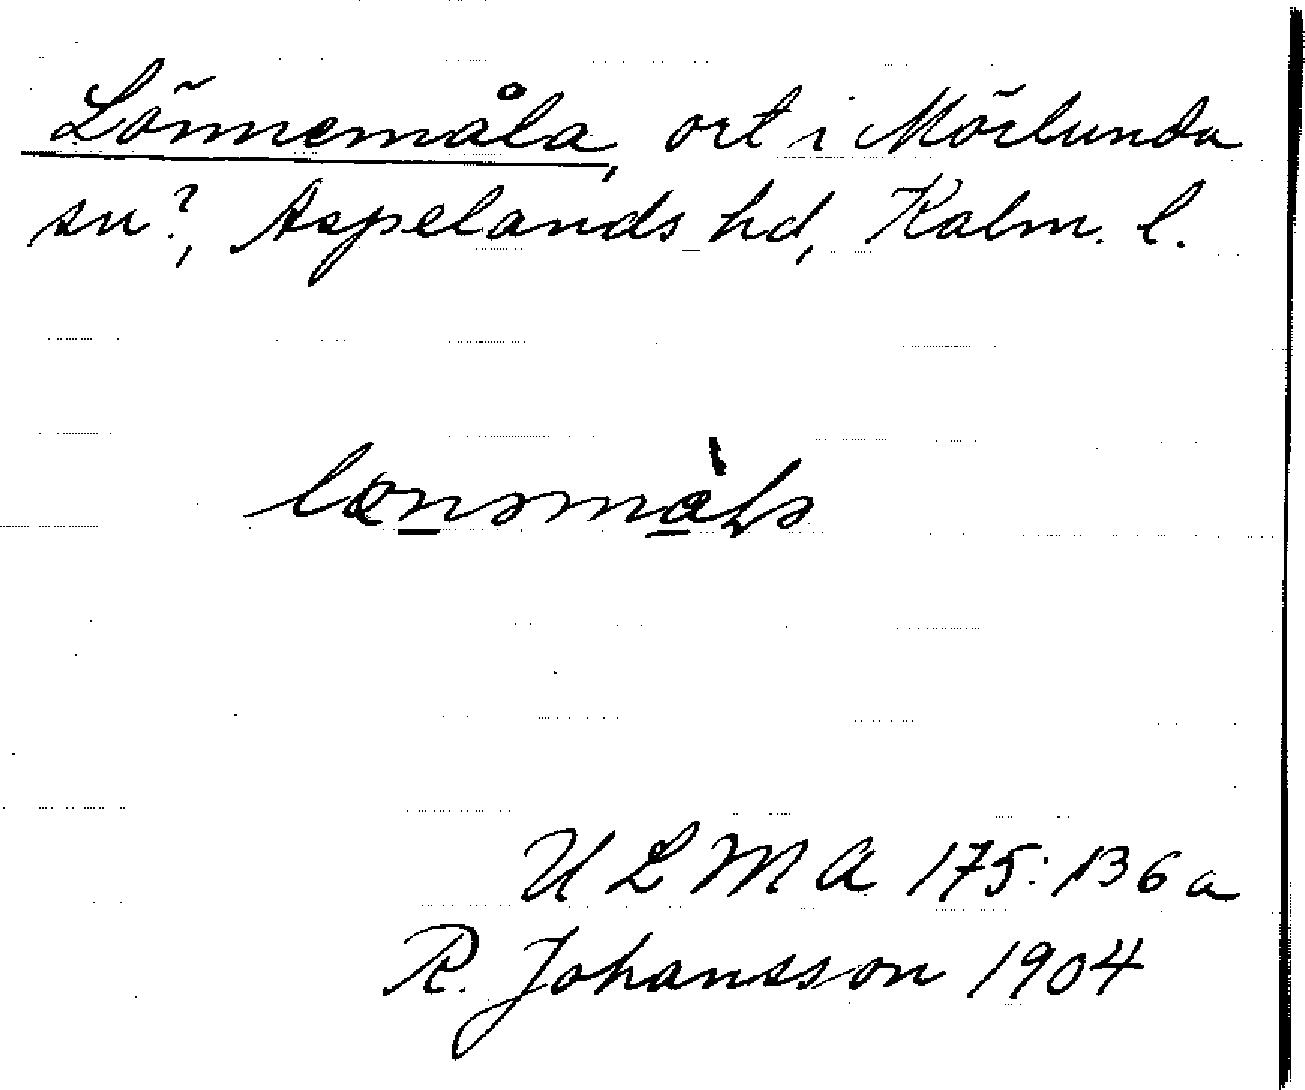 Lönnemåla, ort i Mörlunda
sn?, Aspelands hd, Kalm. l.
ULMA 175:136a
R. Johansson 1904